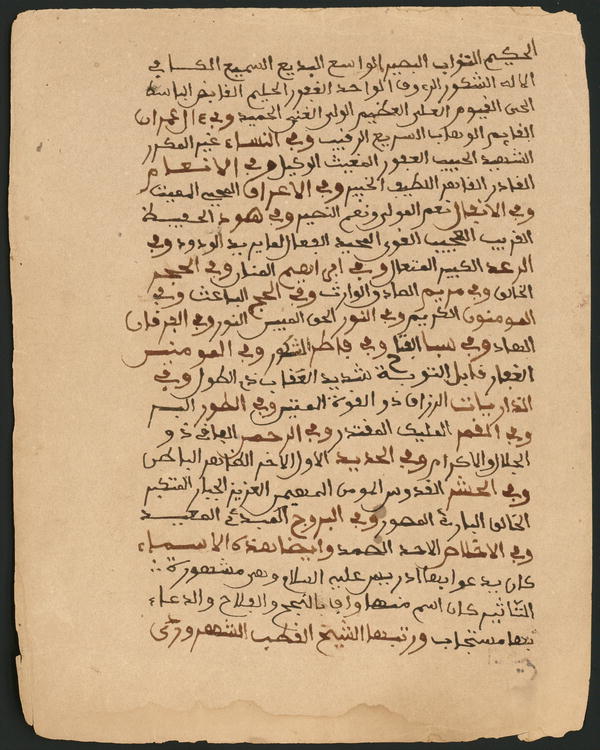 الحكيم التواب البصير الواسع البديع السميع الكافي
الاله الشكور الرءوف الواحد الغفور الحليم القابض الباسط
الحي القيوم العلي العظيم الولي الغني الحميد وفي ءال عمران
القايم الوهاب السريع الرقيب وفي النساء غير المكرر
الشهيد الحسيب الغفور المغيث الوكيل وفي الانعام
القادر القاهر اللطيف الخبير وفي الاعراف المحيي المميت
وفي الانفال نعم المولى ونعم النصير وفي هود الحفيظ
القريب المجيب القوي المجيد الفعال لما يريد الودود وفي
الرعد الكبير المتعال وفي ابراهيم المنان وفي الحجر
الخالق وفي مريم الصادق الوارث وفي الحج الباعث وفي
المومنون الكريم وفي النور الحق المبين النور وفي الفرقان
الهاد وفي سبا الفتاح وفي فاطر الشكور وفي المومنين
الغفار قابل التوبة شديد العقاب ذي الطول وفي
الذاريات الرزاق ذو القوة المتين وفي الطور البر
وفي القمر المليك المقتدر وفي الرحمن الباقي ذو
الجلال والاكرام وفي الحديد الاول الاخر الظاهر الباطن
وفي الحشر القدوس المومن المهيمن العزيز الجبار المتكبر
الخالق البارئ المصور وفي البروج المبدئ المعيد
وفي الاخلاص الاحد الصمد وايضا هذه الاسماء
كان يدعوا بها ادريس عليه السلام وهي مشهورة
التاثير كان اسم منها وافيا بالنجح والفلاح والدعاء
بها مستجاب ورتبها الشيخ القطب الشهروردي